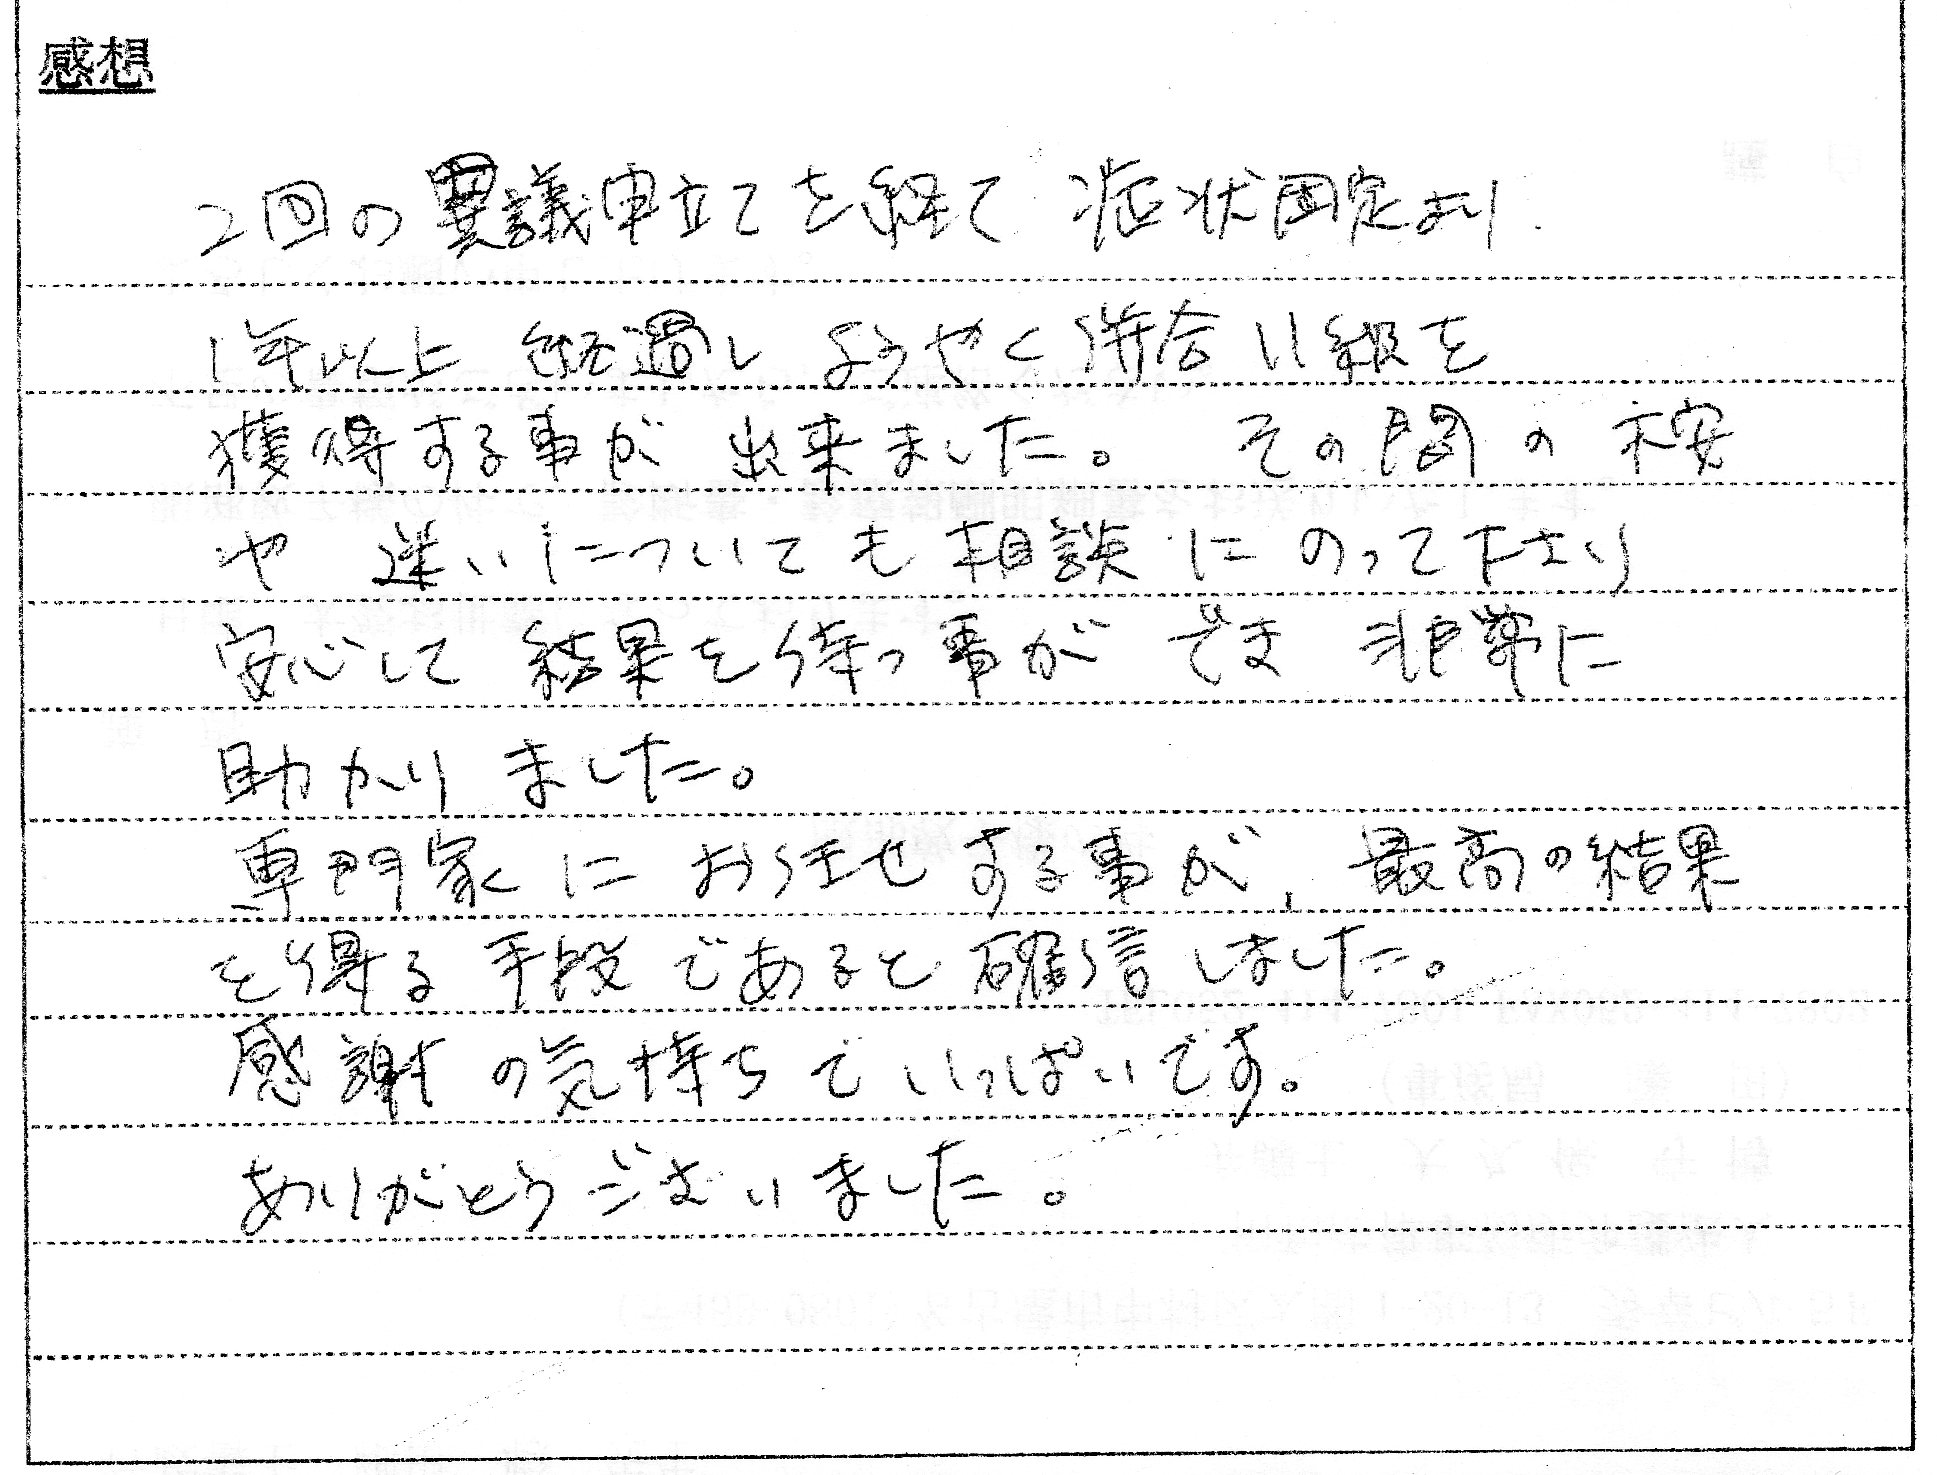 感想
2回の異議申立てを経て 症状固定より
1年以上 経過し ようやく併合11級を
獲得する事が 出来ました。 その間の不安
や 迷いについても相談にのって下さり
安心して 結果を待つ事ができ 非常に
助かりました。
専門家に お任せする事が、最高の結果
を得る手段であると確信しました。
感謝の気持ちでいっぱいです。
ありがとうございました。